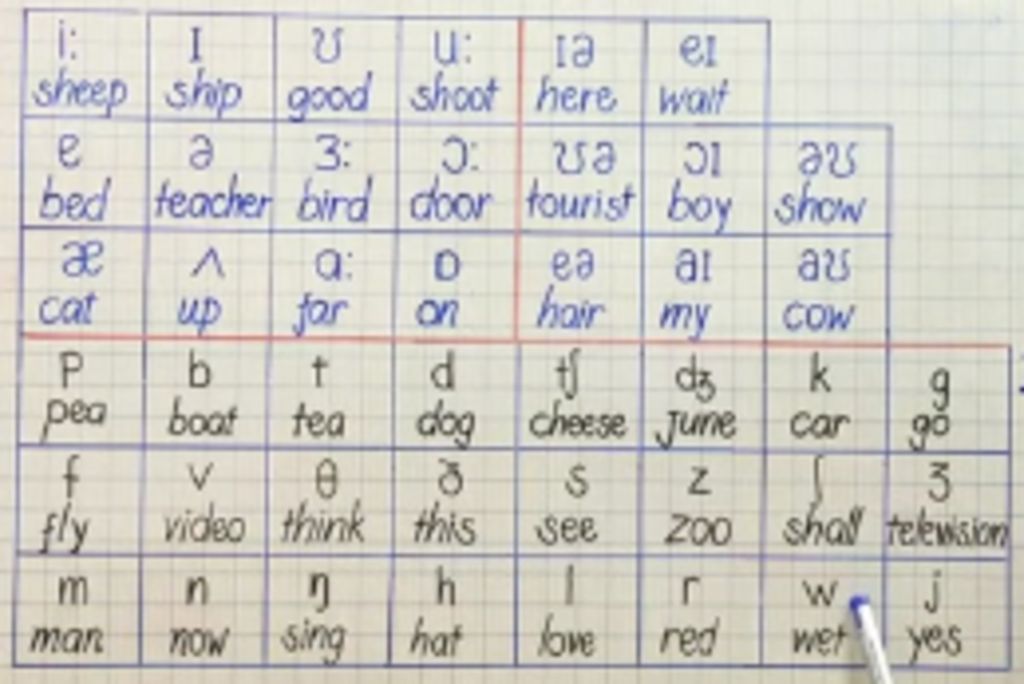 i: ɪ ʊ u: ɪə eɪ
sheep ship good shoot here wait
e ə ɜ: ɔ: ʊə ɔɪ əʊ
bed teacher bird door tourist boy show
æ ʌ ɑ: ɒ eə aɪ aʊ
cat up far on hair my cow
p b t d tʃ dʒ k g
pea boat tea dog cheese June car go
f v θ ð s z ʃ ʒ
fly video think this see zoo shall television
m n ŋ h l r w j
man now sing hat love red wet yes